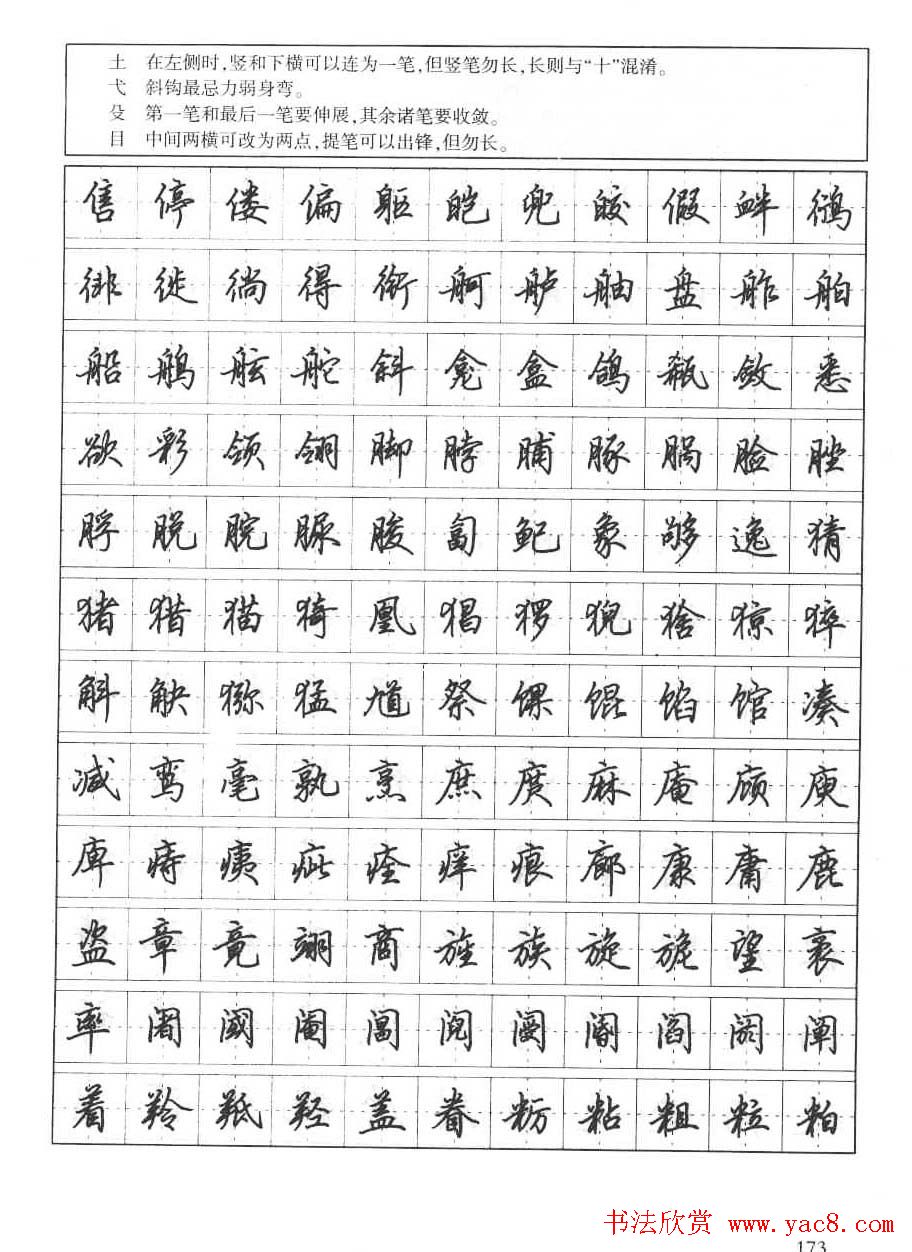 土 在左侧时,竖和下横可以连为一笔,但竖笔勿长,长则与“十”混淆。
弋 斜钩最忌力弱身弯。
殳 第一笔和最后一笔要伸展,其余诸笔要收敛。
目 中间两横可改为两点,提笔可以出锋,但勿长。
售 停 偻 偏 躯 皑 兜 皎 假 衅 鸻
徘 徙 徜 得 衔 舸 舻 舳 盘 舴 舶
船 鸼 舷 舵 斜 龛 盒 鸽 瓻 敛 悉
欲 彩 领 翎 脚 脖 脯 豚 脶 脸 脞
脬 脱 脘 脲 朘 匐 鱾 象 够 逸 猜
猪 猎 猫 猗 凰 猖 猡 猊 猞 猄 猝
斛 觖 猕 猛 馗 祭 馃 馄 馅 馆 凑
减 鸾 毫 孰 烹 庶 庹 麻 庵 庼 庾
庳 痔 痍 疵 痊 痒 痕 廊 康 庸 鹿
盗 章 竟 翊 商 旌 族 旋 旎 望 袤
率 阇 阈 阉 阊 阋 阌 阍 阎 阏 阐
着 羚 羝 羟 盖 眷 粝 粘 粗 粒 粕
书法欣赏 www.yac8.com
173